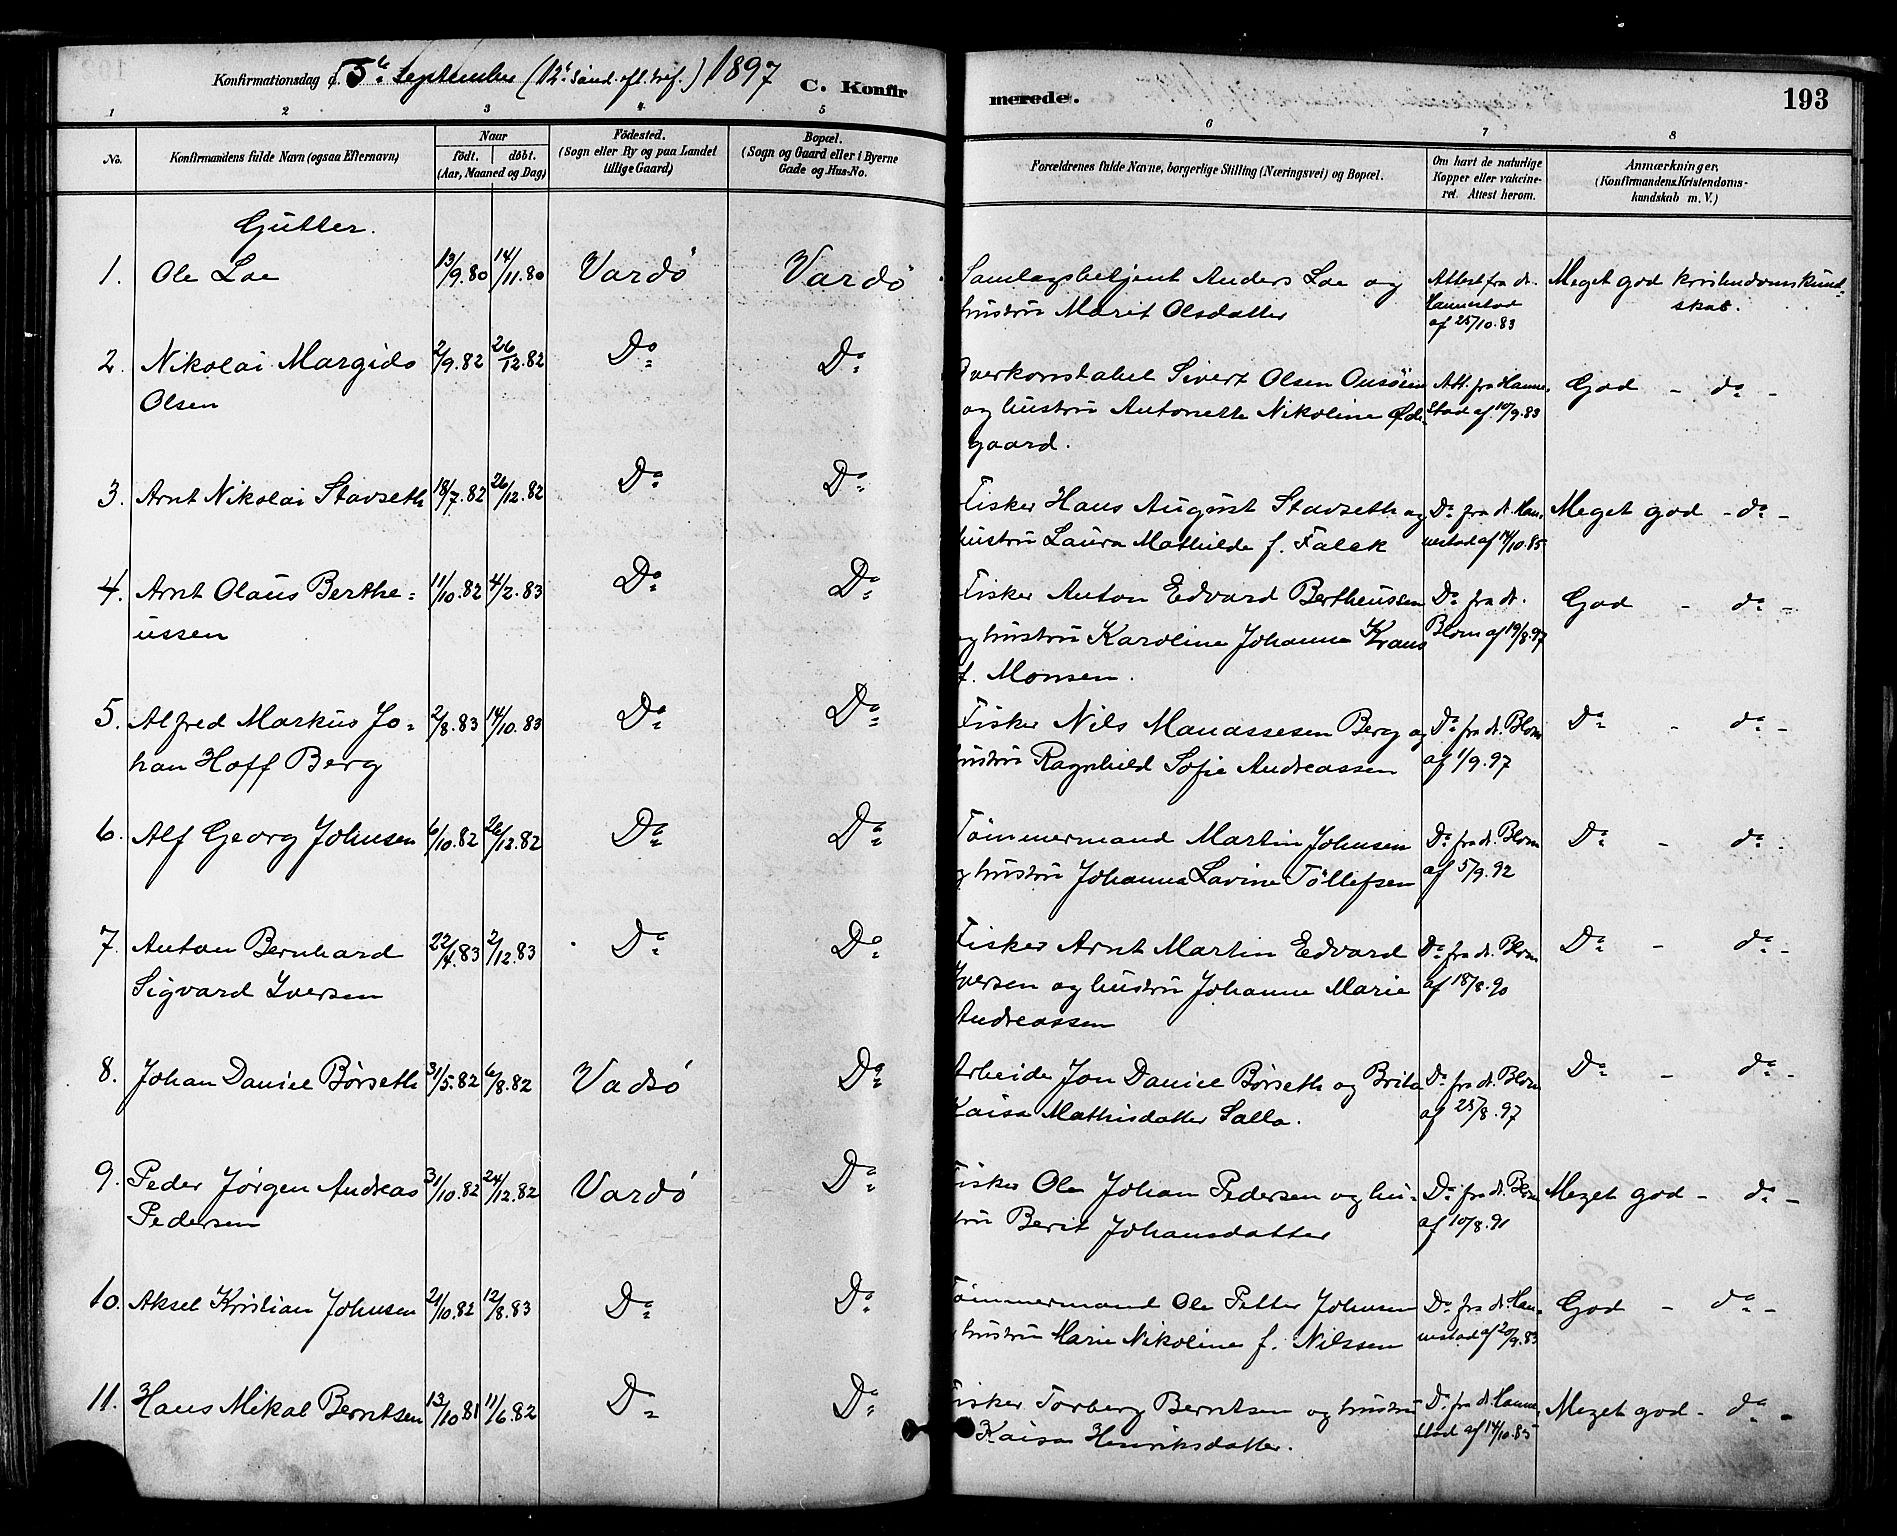 Konfirmationsdag d. 5te September (12te Sönd. eft. tref.) 1897
C. Konfirmerede.
193
1 2 3 4 5 6 7 8
No.
Konfirmandens fulde Navn (ogsaa Efternavn)
Naar
födt. döbt.
(Aar, Maaned og Dag)
Födested.
(Sogn eller By og paa Landet
tillige Gaard)
Bopæl.
(Sogn og Gaard eller i Byerne
Gade og Hus-No.
Forældrenes fulde Navne, borgerlige Stilling (Næringsvei) og Bopæl.
Om havt de naturlige
Kopper eller vakcine-
ret. Attest herom.
Anmærkninger,
(Konfirmandens Kristendoms-
kundskab m. V.)
Gutter.
1. Ole Loe 13/9.80 14/11.80 Vardö Vardö Samlagsbetjent Anders Loe og Attest fra dr. Meget god kristendomskund-
hustru Marit Olsdatter Hannestad skab.
af 25/10.83
2. Nikolai Margido 2/9.82 26/12.82 Do Do Overkonstabel Sivert Olsen Att. fra Hanne- God - do -
Olsen og hustru Antonette Nikoline Øde- stad af 10/9.83
gaard.
3. Arnt Nikolai Stavseth 18/7.82 26/12.82 Do Do Fisker Hans August Stavseth og Do fra dr. Han- Meget god - do -
hustru Laura Mathilde f. Falck nestad af 14/10.85
4. Arnt Olaus Berthe- 11/10.82 4/2.83 Do Do Fisker Anton Edvard Bertheussen Do fra dr. God - do -
ussen og hustru Karoline Johanne Kraus Blom af 19/8.97
f. Monsen.
5. Alfred Markus Jo- 2/8.83 14/10.83 Do Do Fisker Nils Manassesen Berg og Do fra dr. Blom Do - do -
han Hoff Berg hustru Ragnhild Sofie Andreassen af 1/9.97
6. Alf Georg Johnsen 6/10.82 26/12.82 Do Do Tömmermand Martin Johnsen Do fra dr. Blom Do - do -
og hustru Johanna Lavine Töllefsen af 5/9.92
7. Anton Bernhard 22/4.83 2/12.83 Do Do Fisker Arnt Martin Edvard Do fra dr. Blom Do - do -
Sigvard Iversen Iversen og hustru Johanne Marie af 18/8.90
Andreassen
8. Johan Daniel Börseth 31/5.82 6/8.82 Vadsö Do Arbeide Jon Daniel Börseth og Brita Do fra dr. Blom Do - do -
Kaisa Mathisdatter Salla. af 25/8.97
9. Peder Jörgen Andreas 31/10.82 24/12.82 Vardö Do Fisker Ole Johan Pedersen og hu- Do fra dr. Blom Meget god - do -
Pedersen stru Berit Johansdatter af 10/8.91
10. Aksel Kristian Johnsen 21/10.82 12/8.83 Do Do Tömmermand Ole Petter Johnsen Do fra dr. Han- God - do -
og hustru Marie Nikoline f. Nilssen nestad af 20/9.83
11. Hans Mikal Berntsen 13/10.81 11/6.82 Do Do Fisker Torberg Berntsen og hustru Do fra dr. Hanne- Meget god - do -
Kaisa Henriksdatter. stad af 14/10.85